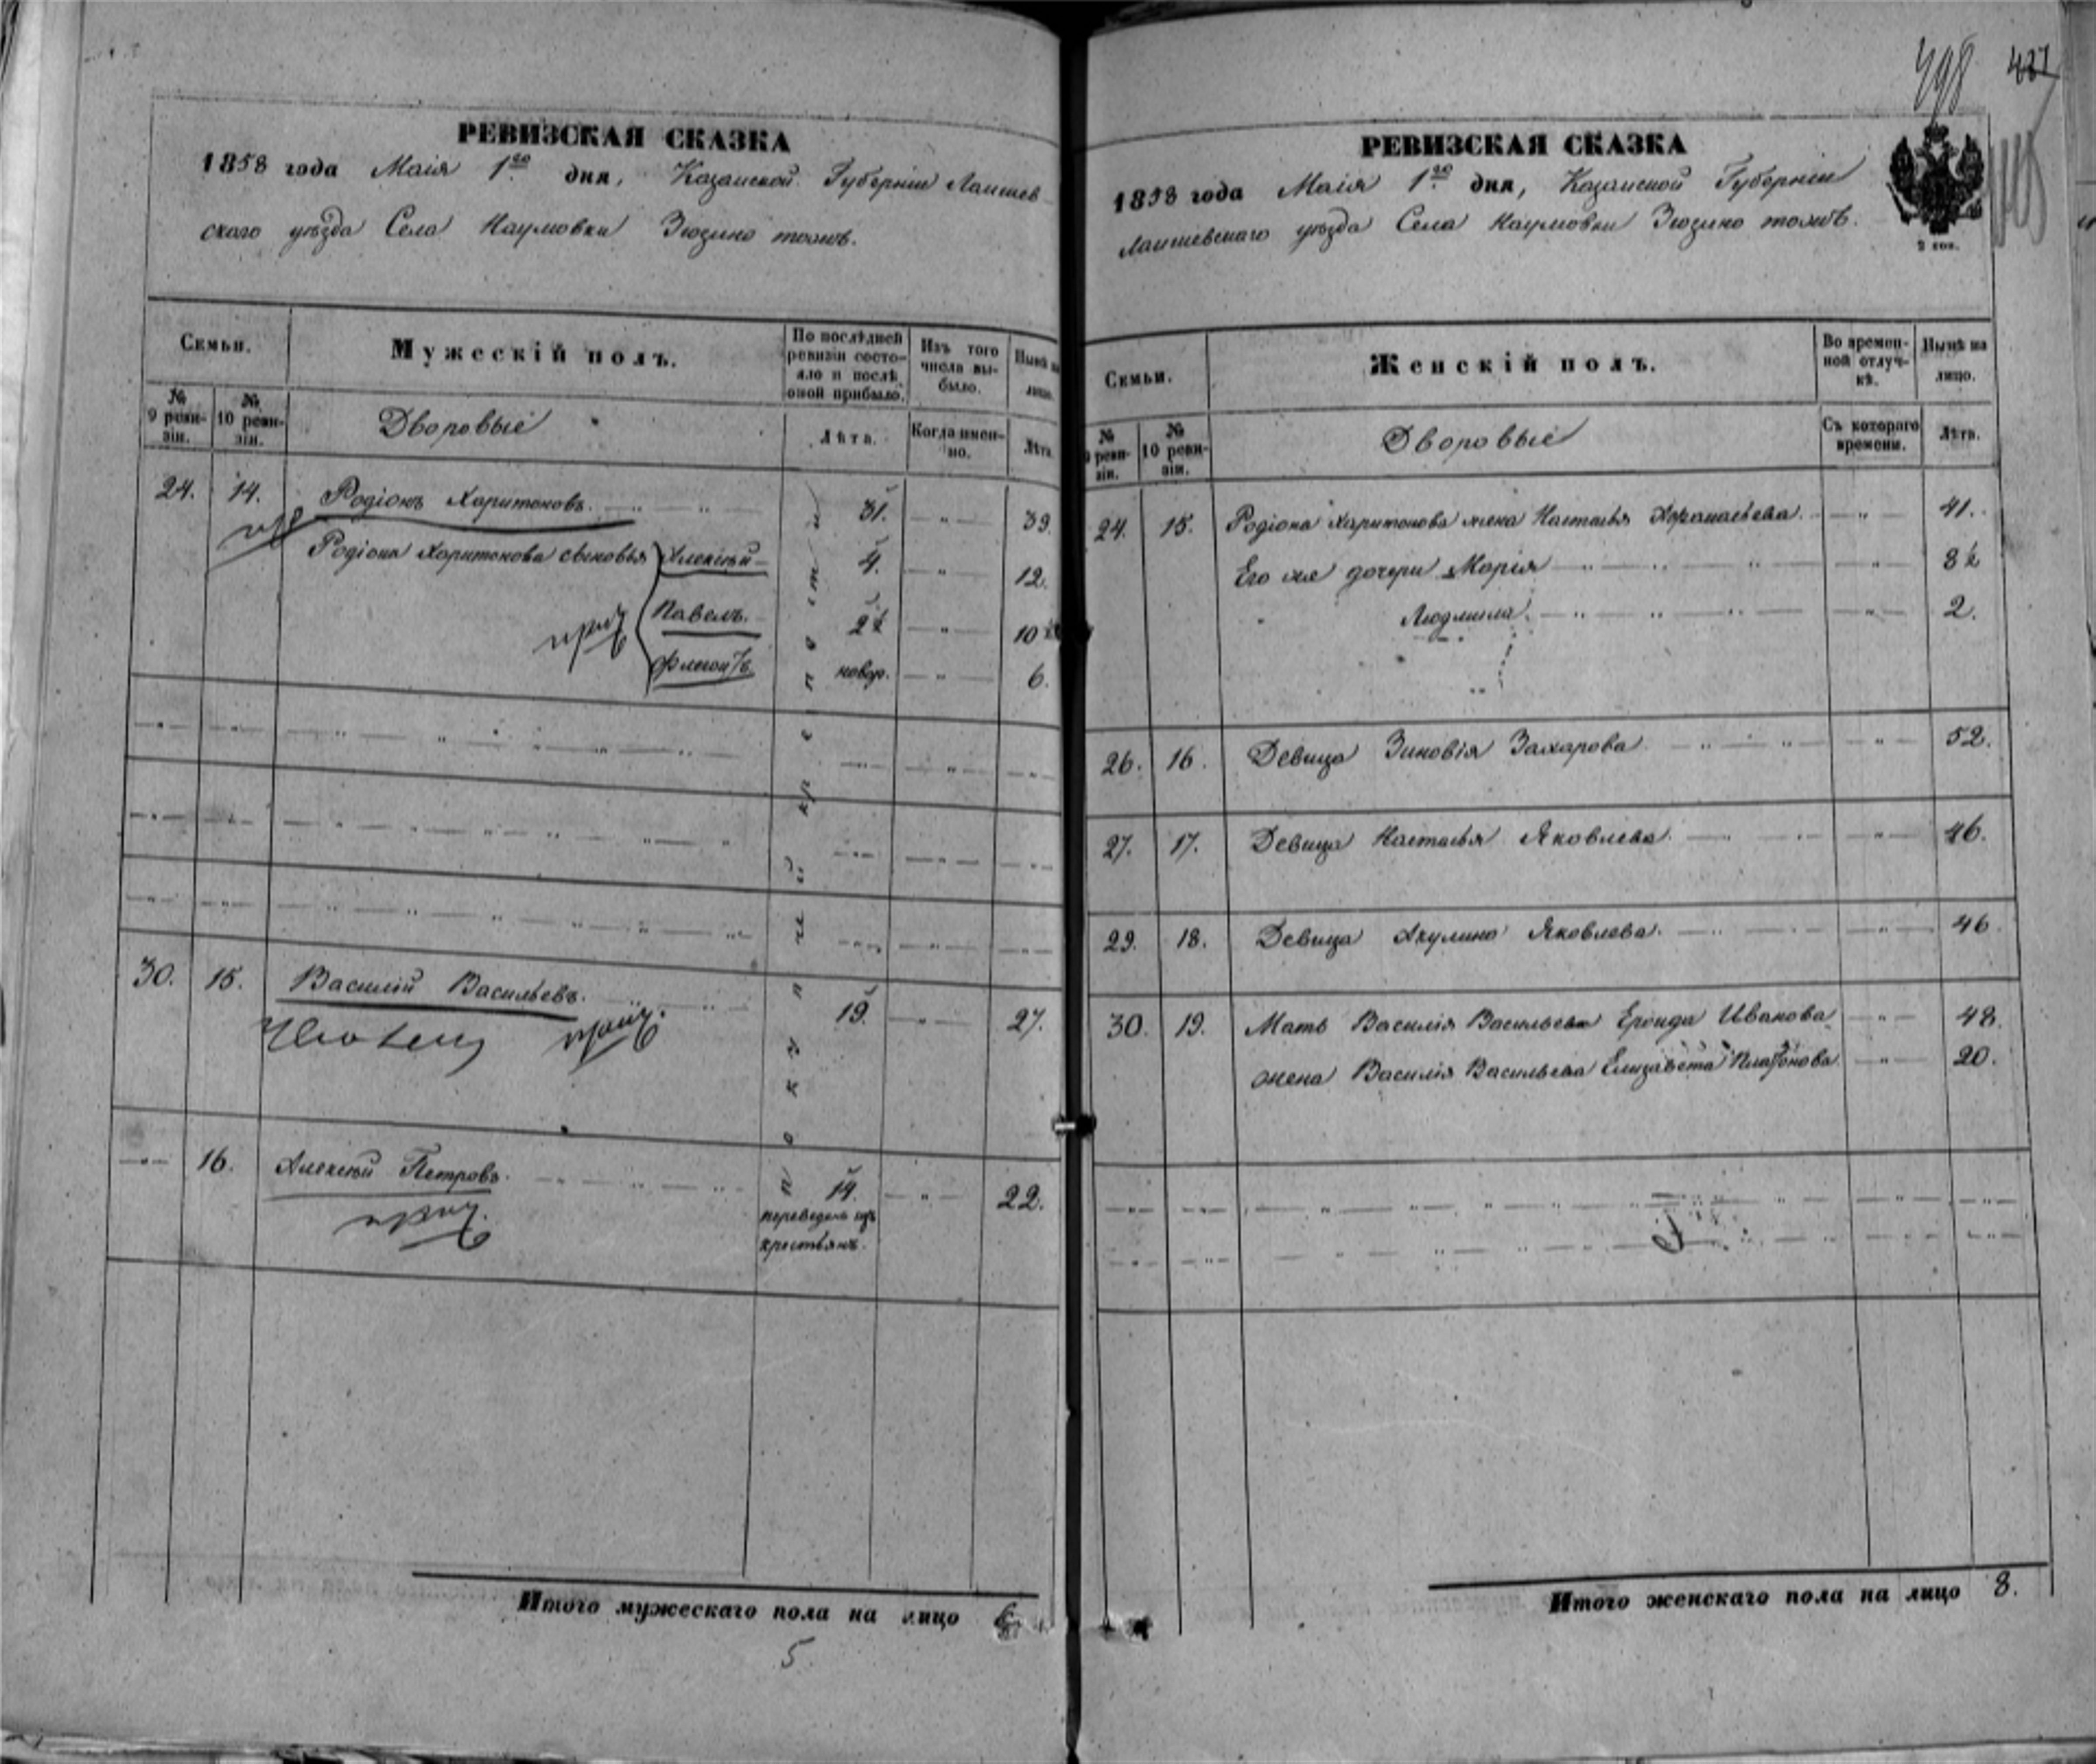 498 437
РЕВИЗСКАЯ СКАЗКА
1858 года Маія 1го дня, Казанской Губерніи Лаишев-
скаго уѣзда Села Наумовки Зюзино тожъ.
Семьи.
Мужескій полъ.
По послѣдней ревизіи состояло и послѣ оной прибыло.
Изъ того числа выбыло.
Нынѣ на лицо.
№ 9 ревизіи.
№ 10 ревизіи.
Дворовые
Лѣта.
Когда именно.
Лѣта.
24. 14. Родіонъ Харитоновъ. 31. 39.
Родіона Харитонова сыновья Алексѣй 4. 12.
Павелъ. 2½ 10½
Флегонтъ. новор. 6.
30. 15. Василій Васильевъ. 19. 27.
16. Алексѣй Петровъ. 14. 22.
переведенъ изъ
крестьянъ.
Итого мужескаго пола на лицо 6
5.
РЕВИЗСКАЯ СКАЗКА
1858 года Маія 1го дня, Казанской Губерніи
Лаишевскаго уѣзда Села Наумовки Зюзино тожъ.
Семьи.
Женскій полъ.
Во временной отлучкѣ.
Нынѣ на лицо.
№ 9 ревизіи.
№ 10 ревизіи.
Дворовые
Съ котораго времени.
Лѣта.
24. 15. Родіона Харитонова жена Настасья Афанасьева. 41.
Его же дочери Марія 8½
Людмила. 2.
26. 16. Девица Зиновія Захарова 52.
27. 17. Девица Настасья Яковлева. 46.
29. 18. Девица Акулина Яковлева. 46
30. 19. Мать Василія Васильева Ераида Иванова 48.
жена Василія Васильева Елизавета Платонова. 20.
Итого женскаго пола на лицо 8.